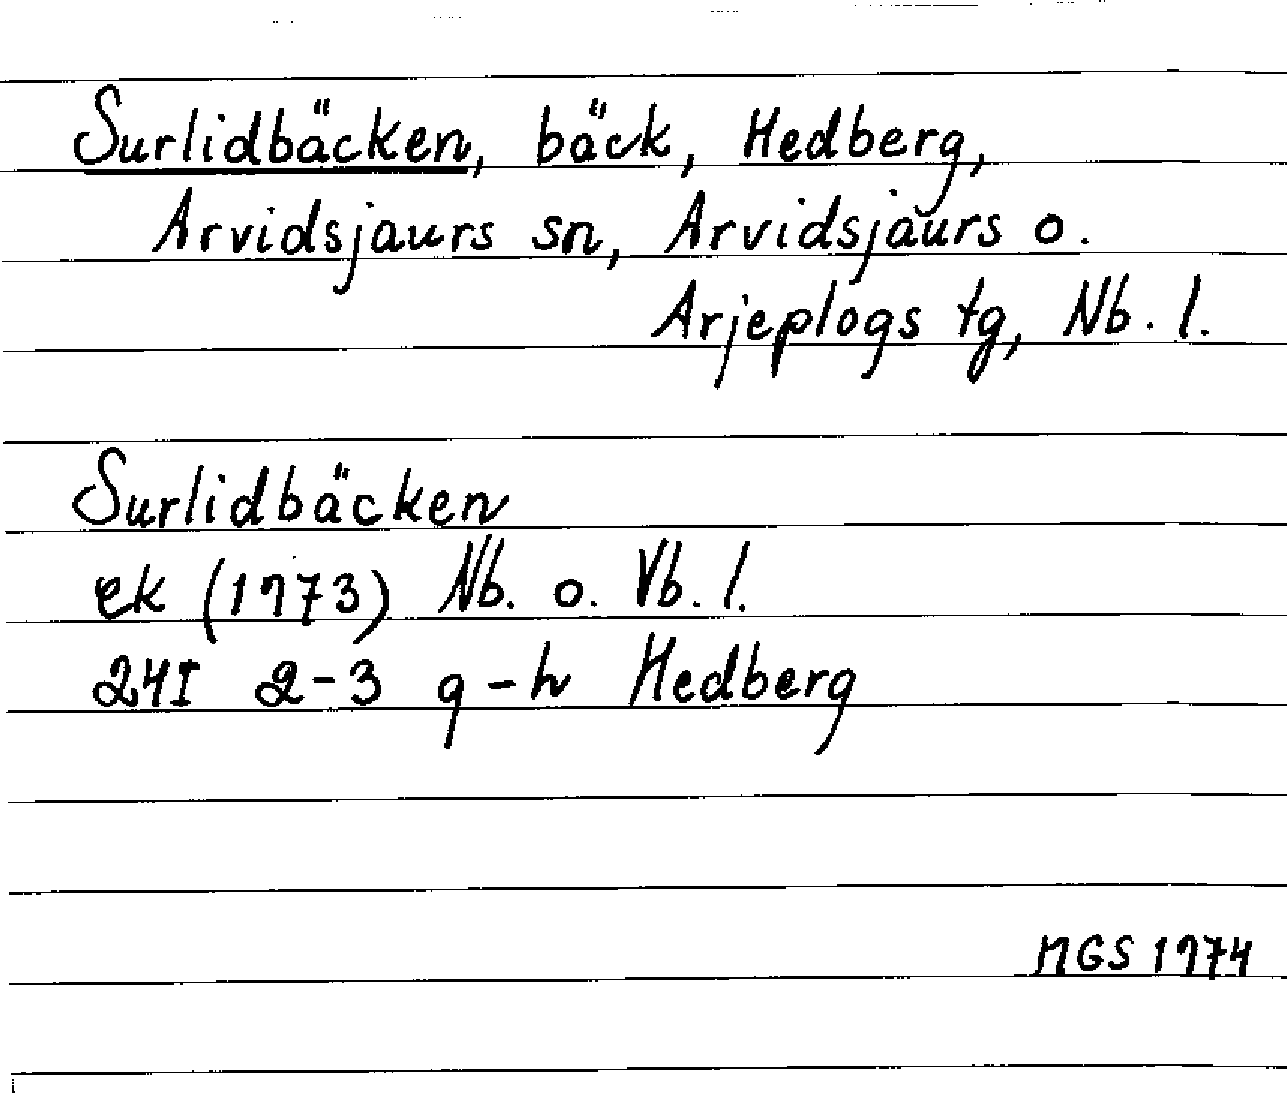 Surlidbäcken, bäck, Hedberg,
Arvidsjaurs sn, Arvidsjaurs o.
Arjeplogs tg, Nb. l.
Surlidbäcken
ek (1973) Nb. o. Vb. l.
24I 2-3 g-h Hedberg
MGS 1974